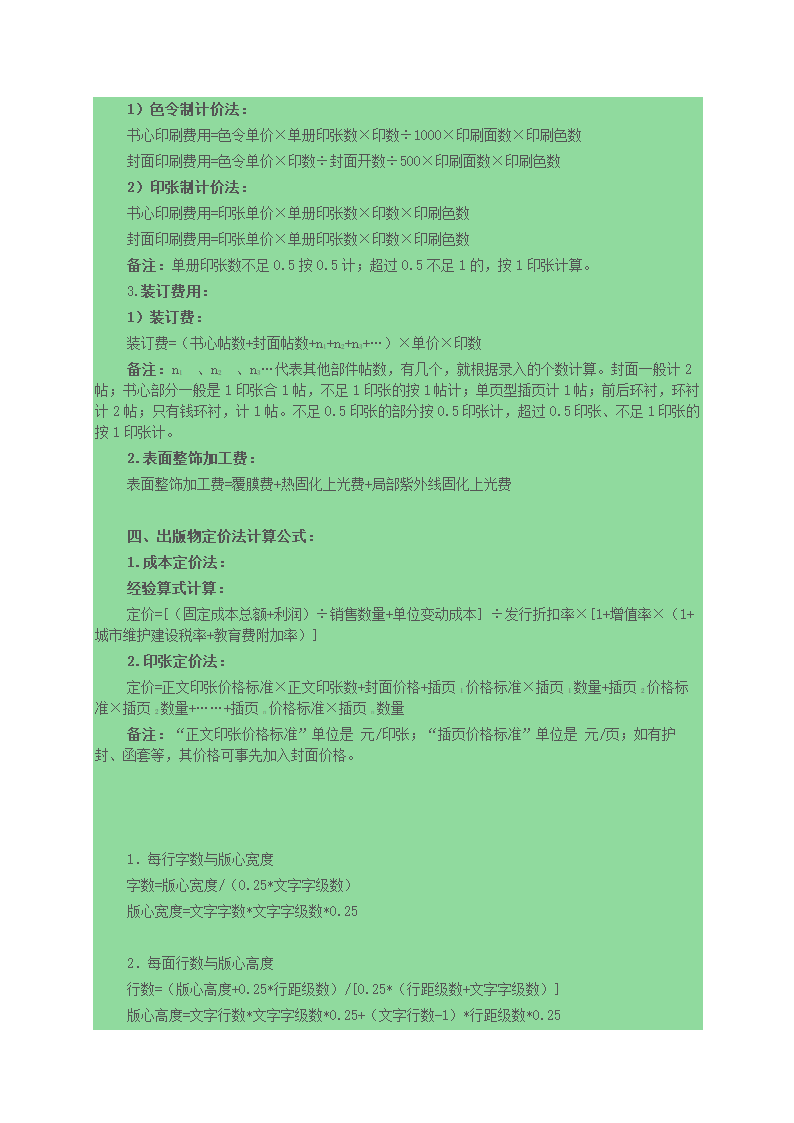 1）色令制计价法：
书心印刷费用=色令单价×单册印张数×印数÷1000×印刷面数×印刷色数
封面印刷费用=色令单价×印数÷封面开数÷500×印刷面数×印刷色数
2）印张制计价法：
书心印刷费用=印张单价×单册印张数×印数×印刷色数
封面印刷费用=印张单价×单册印张数×印数×印刷色数
备注：单册印张数不足0.5按0.5计；超过0.5不足1的，按1印张计算。
3.装订费用：
1）装订费：
装订费=（书心帖数+封面帖数+n₁+n₂+n₃+…）×单价×印数
备注：n₁ 、n₂ 、n₃…代表其他部件帖数，有几个，就根据录入的个数计算。封面一般计2
帖；书心部分一般是1印张合1帖，不足1印张的按1帖计；单页型插页计1帖；前后环衬，环衬
计2帖；只有钱环衬，计1帖。不足0.5印张的部分按0.5印张计，超过0.5印张、不足1印张的
按1印张计。
2.表面整饰加工费：
表面整饰加工费=覆膜费+热固化上光费+局部紫外线固化上光费
四、出版物定价法计算公式：
1.成本定价法：
经验算式计算：
定价=[（固定成本总额+利润）÷销售数量+单位变动成本] ÷发行折扣率×[1+增值率×（1+
城市维护建设税率+教育费附加率）]
2.印张定价法：
定价=正文印张价格标准×正文印张数+封面价格+插页₁价格标准×插页₁数量+插页₂价格标
准×插页₂数量+……+插页ₙ价格标准×插页ₙ数量
备注：“正文印张价格标准”单位是 元/印张；“插页价格标准”单位是 元/页；如有护
封、函套等，其价格可事先加入封面价格。
1．每行字数与版心宽度
字数=版心宽度/（0.25*文字字级数）
版心宽度=文字字数*文字字级数*0.25
2．每面行数与版心高度
行数=（版心高度+0.25*行距级数）/[0.25*（行距级数+文字字级数）]
版心高度=文字行数*文字字级数*0.25+（文字行数-1）*行距级数*0.25